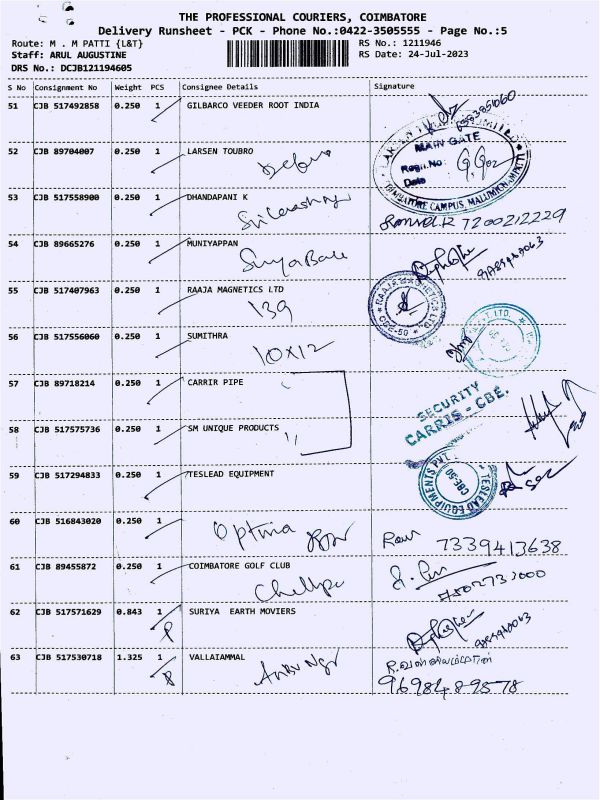 THE PROFESSIONAL COURIERS, COIMBATORE
Delivery Runsheet - PCK - Phone No.:0422-3505555 - Page No.:5
Route: M . M PATTI {L&T}
RS No.: 1211946
Staff: ARUL AUGUSTINE
RS Date: 24-Jul-2023
DRS No.: DCJB121194605
S No Consignment No Weight PCS Consignee Details Signature
51 CJB 517492858 0.250 1 GILBARCO VEEDER ROOT INDIA
MAIN GATE
52 CJB 89704007 0.250 1 LARSEN TOUBRO
Regn.No:
Date
53 CJB 517558900 0.250 1 DHANDAPANI K
7200212229
54 CJB 89665276 0.250 1 MUNIYAPPAN
55 CJB 517407963 0.250 1 RAAJA MAGNETICS LTD
139
56 CJB 517556060 0.250 1 SUMITHRA
10x12
57 CJB 89718214 0.250 1 CARRIR PIPE
SECURITY
CARRIS - CBE.
58 CJB 517575736 0.250 1 SM UNIQUE PRODUCTS
59 CJB 517294833 0.250 1 TESLEAD EQUIPMENT
TESLEAD EQUIPMENTS PVT
CBE-50
60 CJB 516843020 0.250 1
7339413638
61 CJB 89455872 0.250 1 COIMBATORE GOLF CLUB
62 CJB 517571629 0.843 1 SURIYA EARTH MOVIERS
63 CJB 517530718 1.325 1 VALLAIAMMAL
9698489578